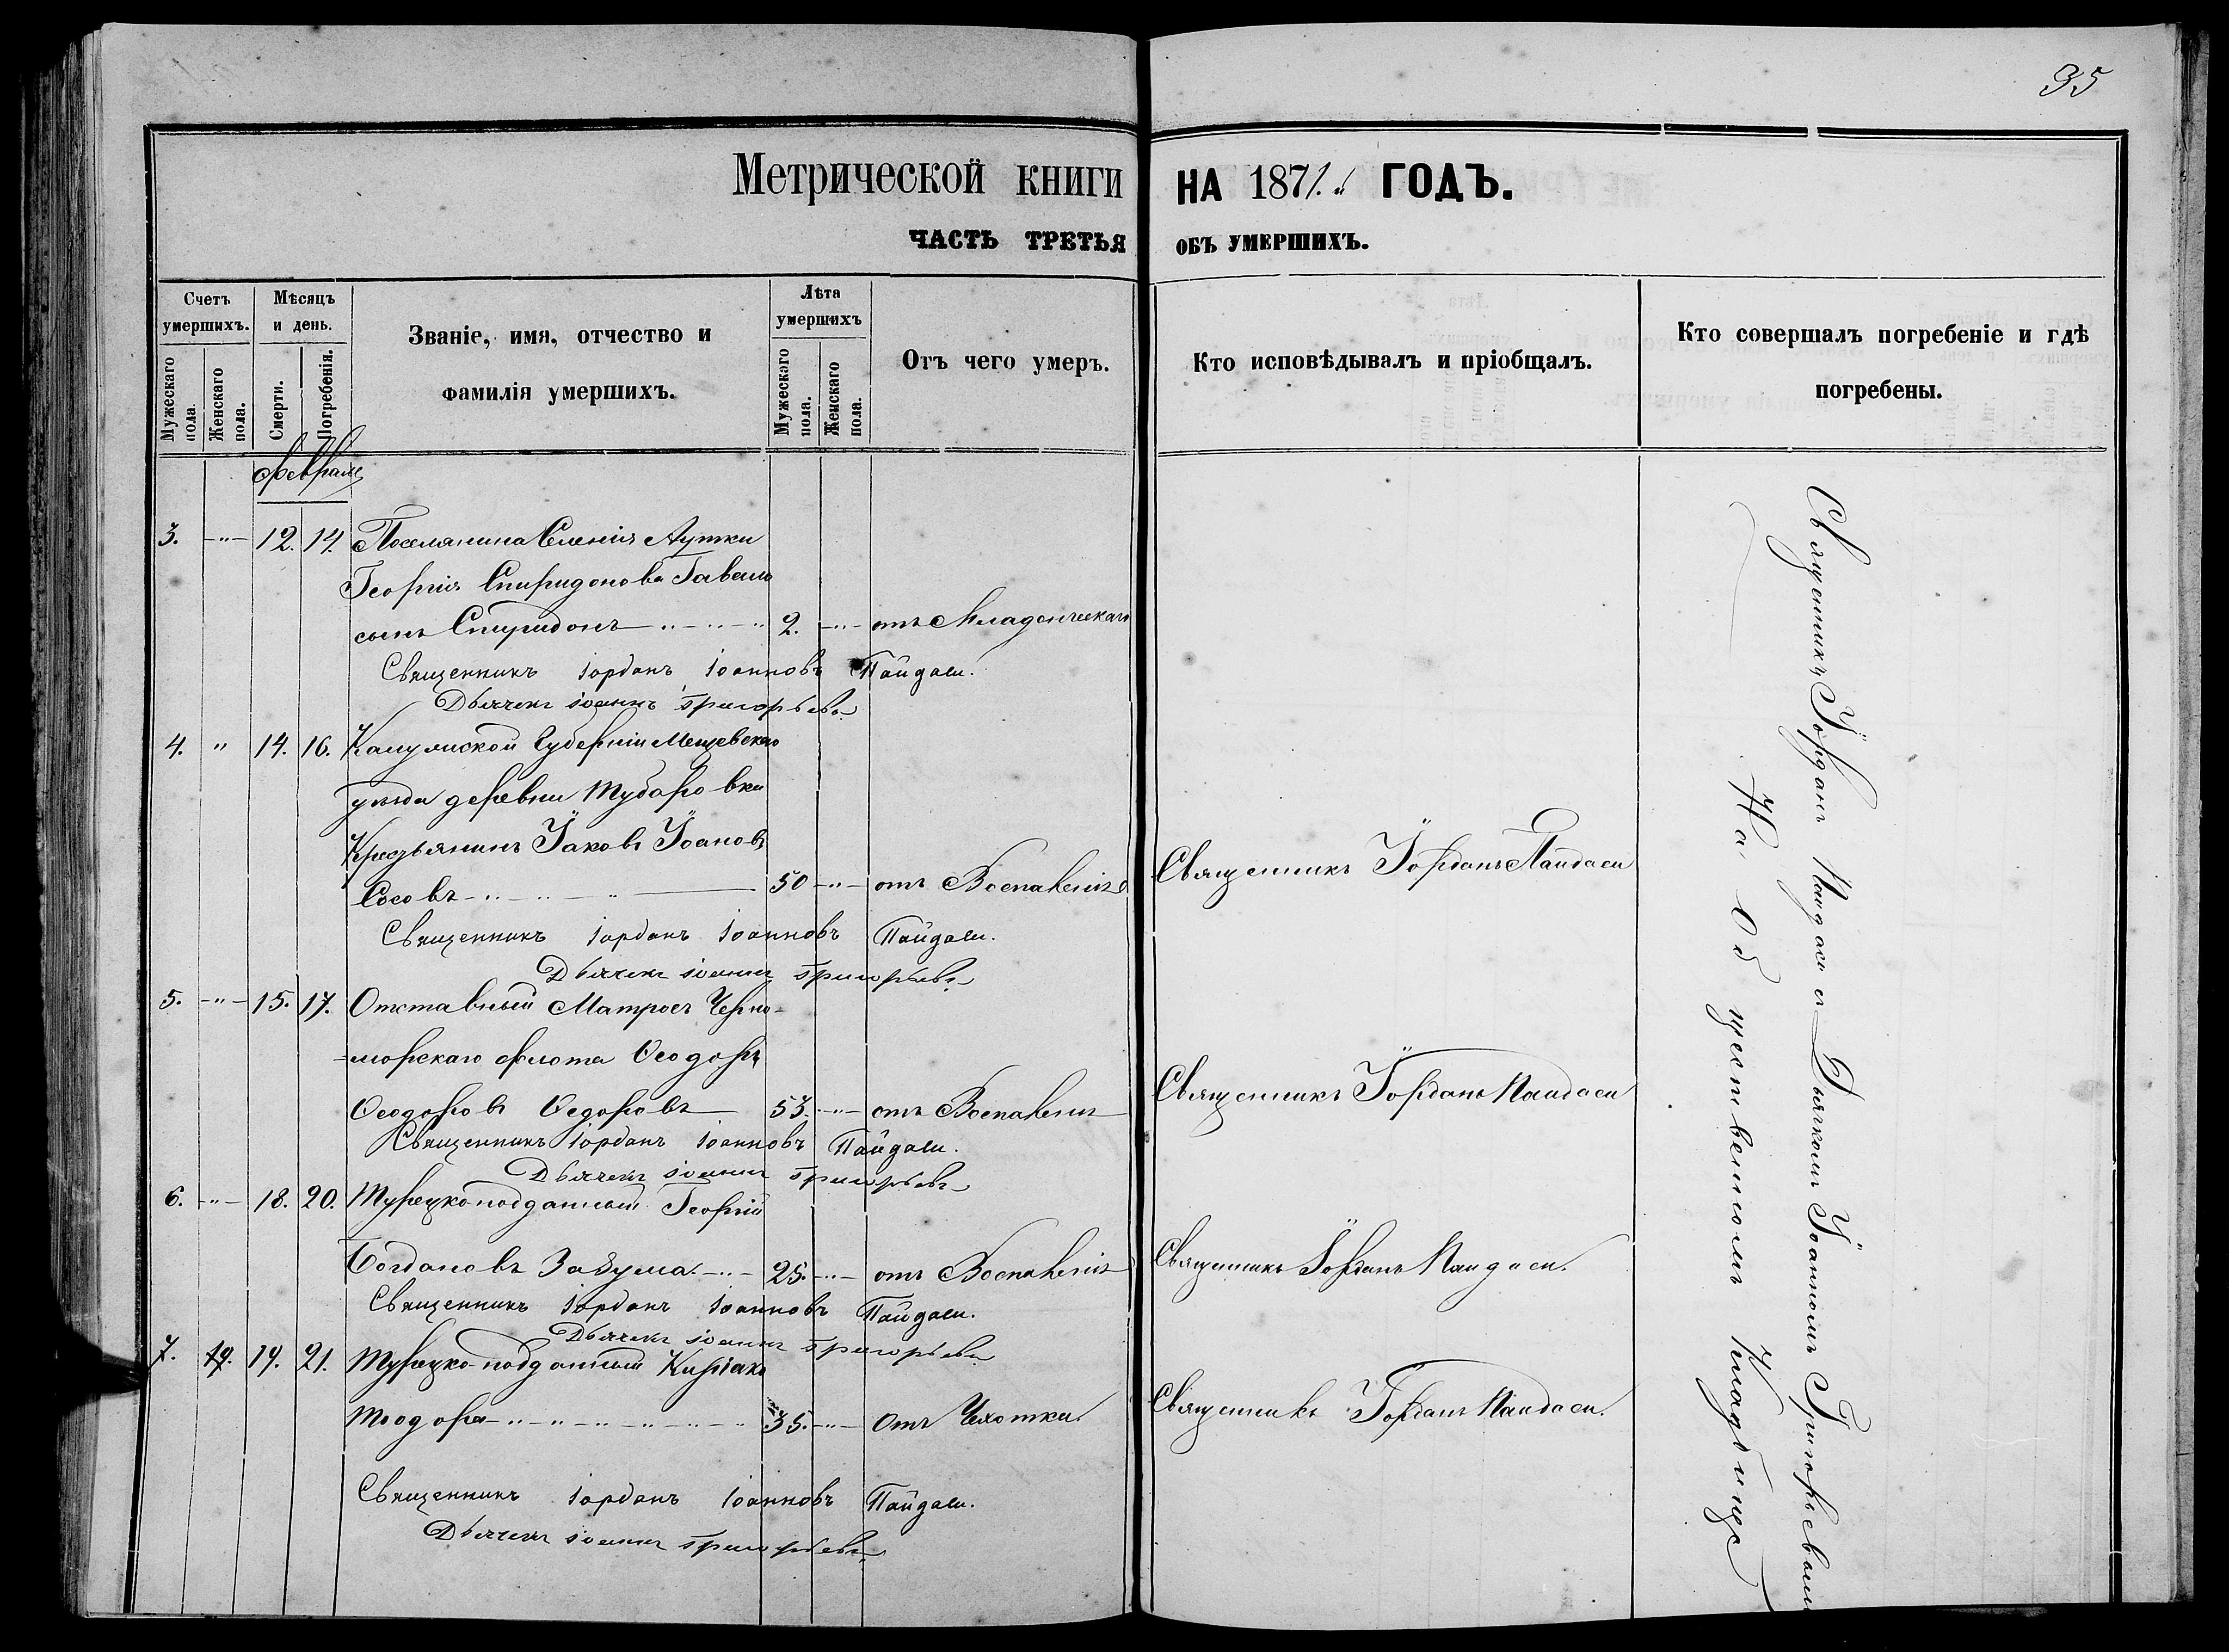 35
Метрической книги НА 1871.й ГОДЪ.
ЧАСТЬ ТРЕТЬЯ ОБЪ УМЕРШИХЪ.
Счетъ умершихъ.
Мужескаго пола.
Женскаго пола.
Мѣсяцъ и день.
Смерти.
Погребенія.
Званіе, имя, отчество и
фамилія умершихъ.
Лѣта умершихъ
Мужескаго пола.
Женскаго пола.
Отъ чего умеръ.
Кто исповѣдывалъ и пріобщалъ.
Кто совершалъ погребеніе и гдѣ
погребены.
Февраль
3. -"- 12. 14. Поселянина Селенія Аутки
Георгія Спиридонова Гавала
сынъ Спиридонъ 2. -"- отъ Младенческаго
Священникъ Іорданъ Іоанновъ Пайдаси.
Дьячекъ Іоаннъ Григорьевъ
4. " 14. 16. Калужской Губерніи Мещевскаго
уѣзда деревни
Крестьянинъ Іаковъ Іоановъ
Сосовъ 50 -"- отъ Воспаленія Священникъ Іорданъ Пайдаси
Священникъ Іорданъ Іоанновъ Пайдаси.
Дьячекъ Іоаннъ Григорьевъ
5. -"- 15. 17. Отставный Матросъ Черно-
-морскаго флота Ѳеодоръ
Ѳеодоровъ Ѳедоровъ 53. -"- отъ Воспаленія Священникъ Іорданъ Пайдаси
Священникъ Іорданъ Іоанновъ Пайдаси.
Дьячекъ Іоаннъ Григорьевъ
6. -"- 18. 20. Турецкоподданный Георгій
Богдановъ 25. -"- отъ Воспаленія Священникъ Іорданъ Пайдаси.
Священникъ Іорданъ Іоанновъ Пайдаси.
Дьячекъ Іоаннъ Григорьевъ
7. 19. 19. 21. Турецко-подданный Киріако
Тодора 35. -"- Отъ Чахотки. Священникъ Іорданъ Пайдаси.
Священникъ Іорданъ Іоанновъ Пайдаси.
Дьячекъ Іоаннъ Григорьевъ
Священникъ Іорданъ Пайдаси съ Дьячкомъ Іоанномъ Григорьевымъ
На Общественномъ Кладбище